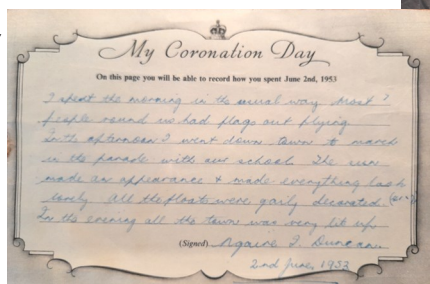 My Coronation Day
On this page you will be able to record how you spent June 2nd, 1953
I spent the morning in the usual way. Most
people round us had flags out flying.
In the afternoon I went down town to march
in the parade with our school The sun
made an appearance & made everything look
lovely All the floats were gaily decorated.
In the evening all the town was very lit up
(Signed) J. Duncan
2nd June, 1953